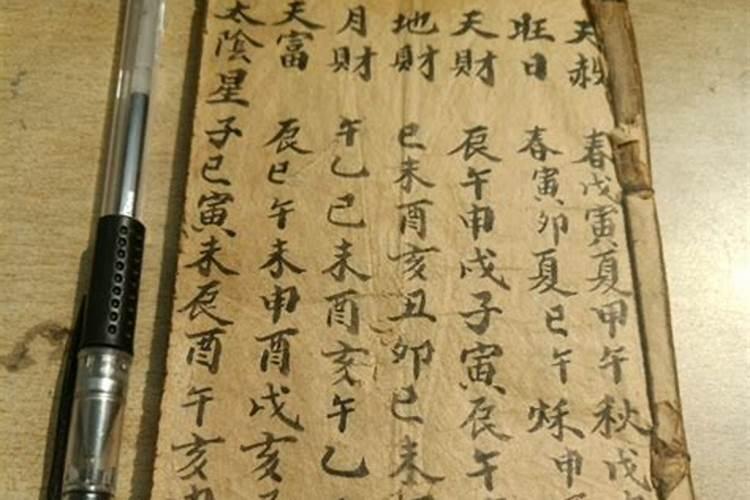 天赦 春戊寅夏甲午秋戊
旺日 春寅卯夏巳午秌申
天財 辰午申戌子寅辰午
地財 巳未酉亥丑卯巳未
月財 午乙巳未酉亥午乙
天富 辰巳午未申酉戌亥子
太陰星 子巳寅未辰酉午亥